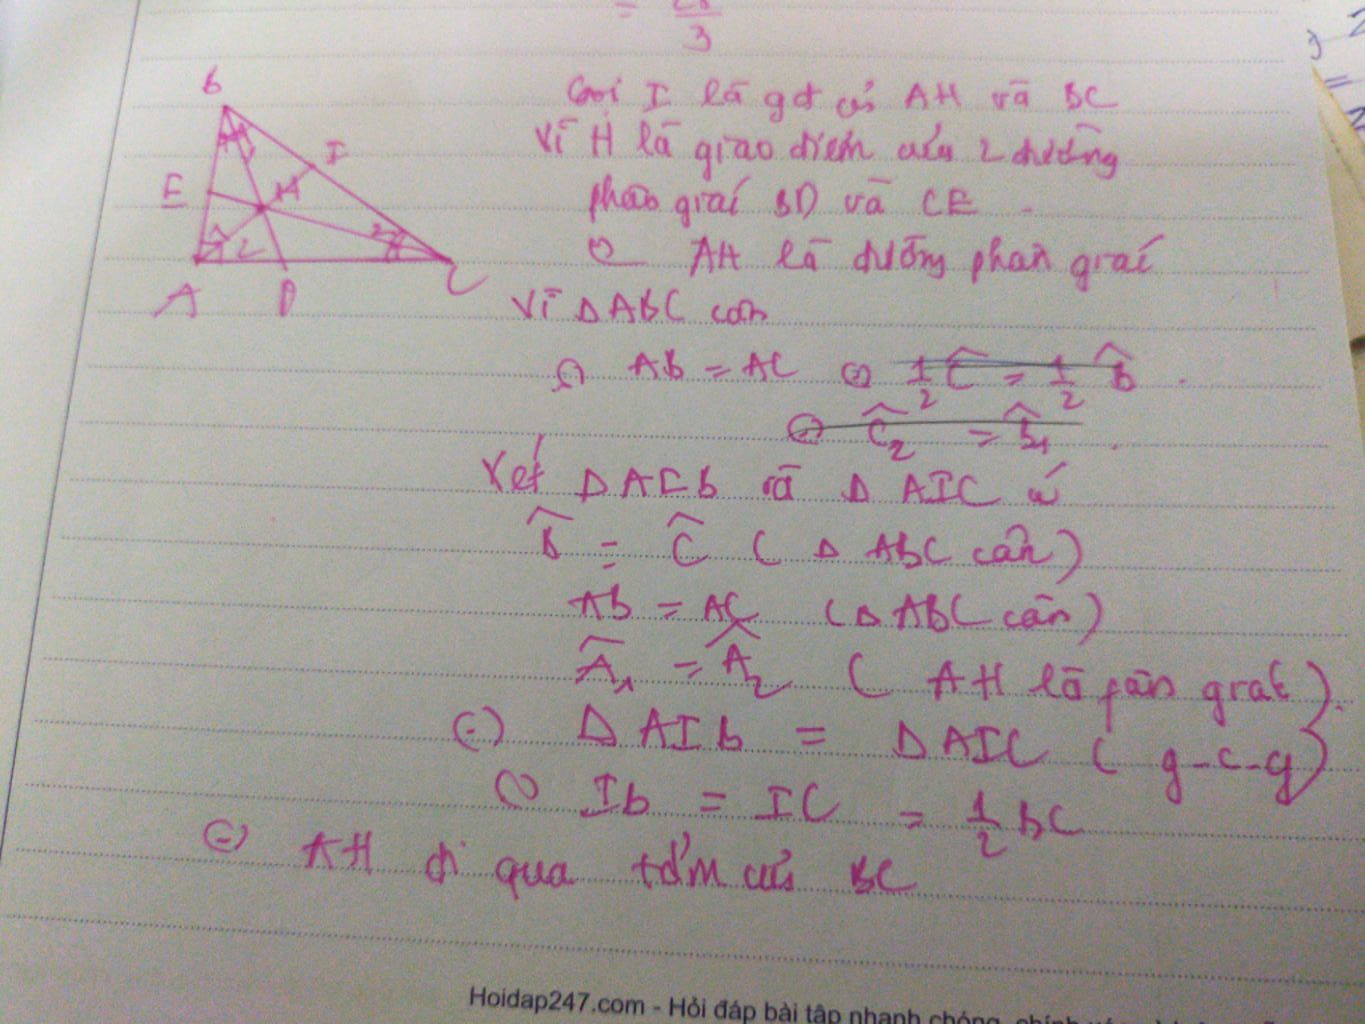 3
B
I
E
H
2
A D C
Gọi I là gđ củ AH và BC
Vì H là giao điểm của 2 đường
phân giác BD và CE
AH là đường phân giác
Vì Δ ABC cân
AB = AC 1/2 Ĉ = 1/2 B̂
Ĉ2 = B̂1
Xét Δ AIB và Δ AIC có
B̂ = Ĉ ( Δ ABC cân )
AB = AC ( Δ ABC cân )
Â1 = Â2 ( AH là pân giác ).
(=) Δ AIB = Δ AIC ( g-c-g )
IB = IC = 1/2 BC
(=) AH đi qua tđm của BC
Hoidap247.com - Hỏi đáp bài tập nhanh chóng, chính